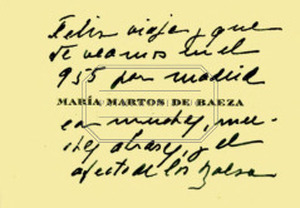 Feliz viaje y que
te veamos en el
955 por madrid
MARÍA MARTOS DE BAEZA
con muchos, mu-
chos abrazos, y el
afecto de los Baeza